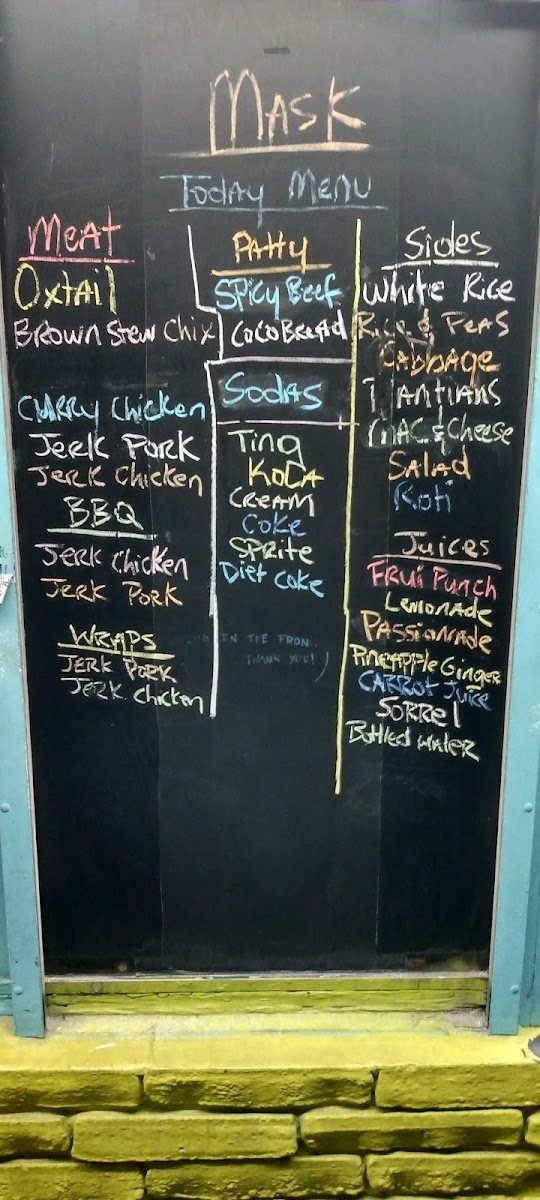 MASK
Today Menu
Meat
Oxtail
Brown Stew Chix
Curry Chicken
Jerk Pork
Jerk Chicken
BBQ
Jerk Chicken
Jerk Pork
Wraps
Jerk Pork
Jerk Chicken
Patty
Spicy Beef
Coco Bread
Sodas
Ting
Kola
Cream
Coke
Sprite
Diet Coke
IN THE FRONT
THANK YOU!)
Sides
White Rice
Rice & Peas
Cabbage
Plantians
Mac & Cheese
Salad
Roti
Juices
Frui Punch
Lemonade
Passionade
Pineapple Ginger
Carrot Juice
Sorrel
Bottled Water